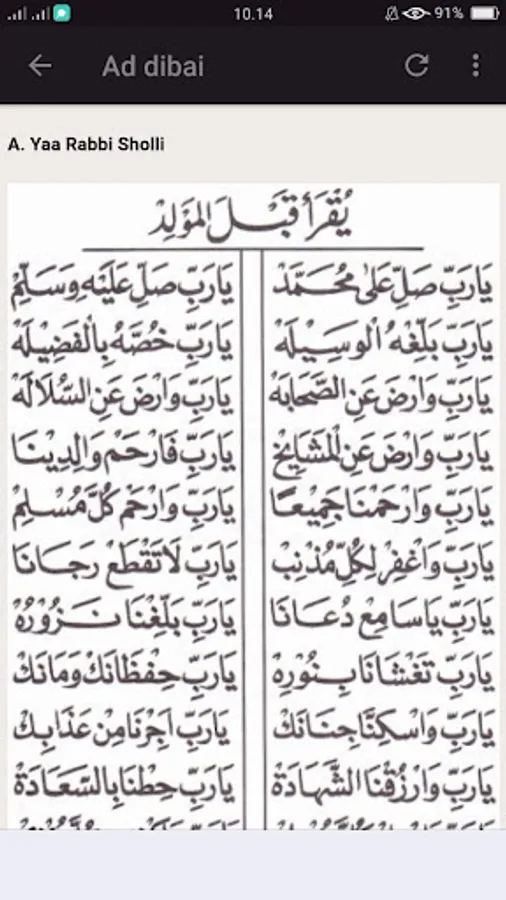 10.14 91%
Ad dibai
A. Yaa Rabbi Sholli
يُقْرَأُ قَبْلَ الْمَوْلِدْ
يَارَبِّ صَلِّ عَلٰى مُحَمَّدْ يَارَبِّ صَلِّ عَلَيْهِ وَسَلِّمْ
يَارَبِّ بَلِّغْهُ الْوَسِيْلَهْ يَارَبِّ خُصَّهُ بِالْفَضِيْلَهْ
يَارَبِّ وَارْضَ عَنِ الصَّحَابَهْ يَارَبِّ وَارْضَ عَنِ السُّلَالَهْ
يَارَبِّ وَارْضَ عَنِ الْمَشَايِخْ يَارَبِّ فَارْحَمْ وَالِدِيْنَا
يَارَبِّ وَارْحَمْنَا جَمِيْعًا يَارَبِّ وَارْحَمْ كُلَّ مُسْلِمْ
يَارَبِّ وَاغْفِرْ لِكُلِّ مُذْنِبْ يَارَبِّ لَاتَقْطَعْ رَجَانَا
يَارَبِّ يَاسَامِعْ دُعَانَا يَارَبِّ بَلِّغْنَا نَزُوْرُهْ
يَارَبِّ تَغْشَانَا بِنُوْرِهْ يَارَبِّ حِفْظَانَكْ وَمَانَكْ
يَارَبِّ وَاسْكِنَّا جِنَانَكْ يَارَبِّ اَجِرْنَا مِنْ عَذَابِكْ
يَارَبِّ وَارْزُقْنَا الشَّهَادَةْ يَارَبِّ حِطْنَا بِالسَّعَادَةْ